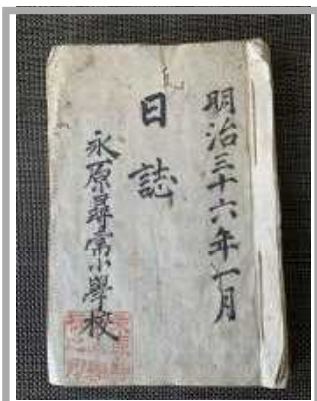 明治三十六年一月
日誌
永原尋常小學校